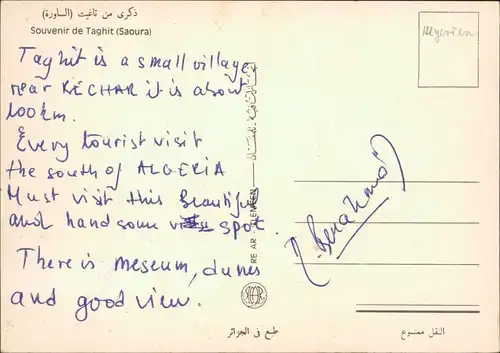 ذكرى من تاغيت (الساورة)
Souvenir de Taghit (Saoura)
Taghit is a small village
near BECHAR it is about
100km.
Every tourist visit
the south of ALGERIA
Must visit this Beautiful
and handsome spot.
There is meseum, dunes
and good view.
Algerien
RE AR - TLEMCEN
طبع في الجزائر
النقل ممنوع